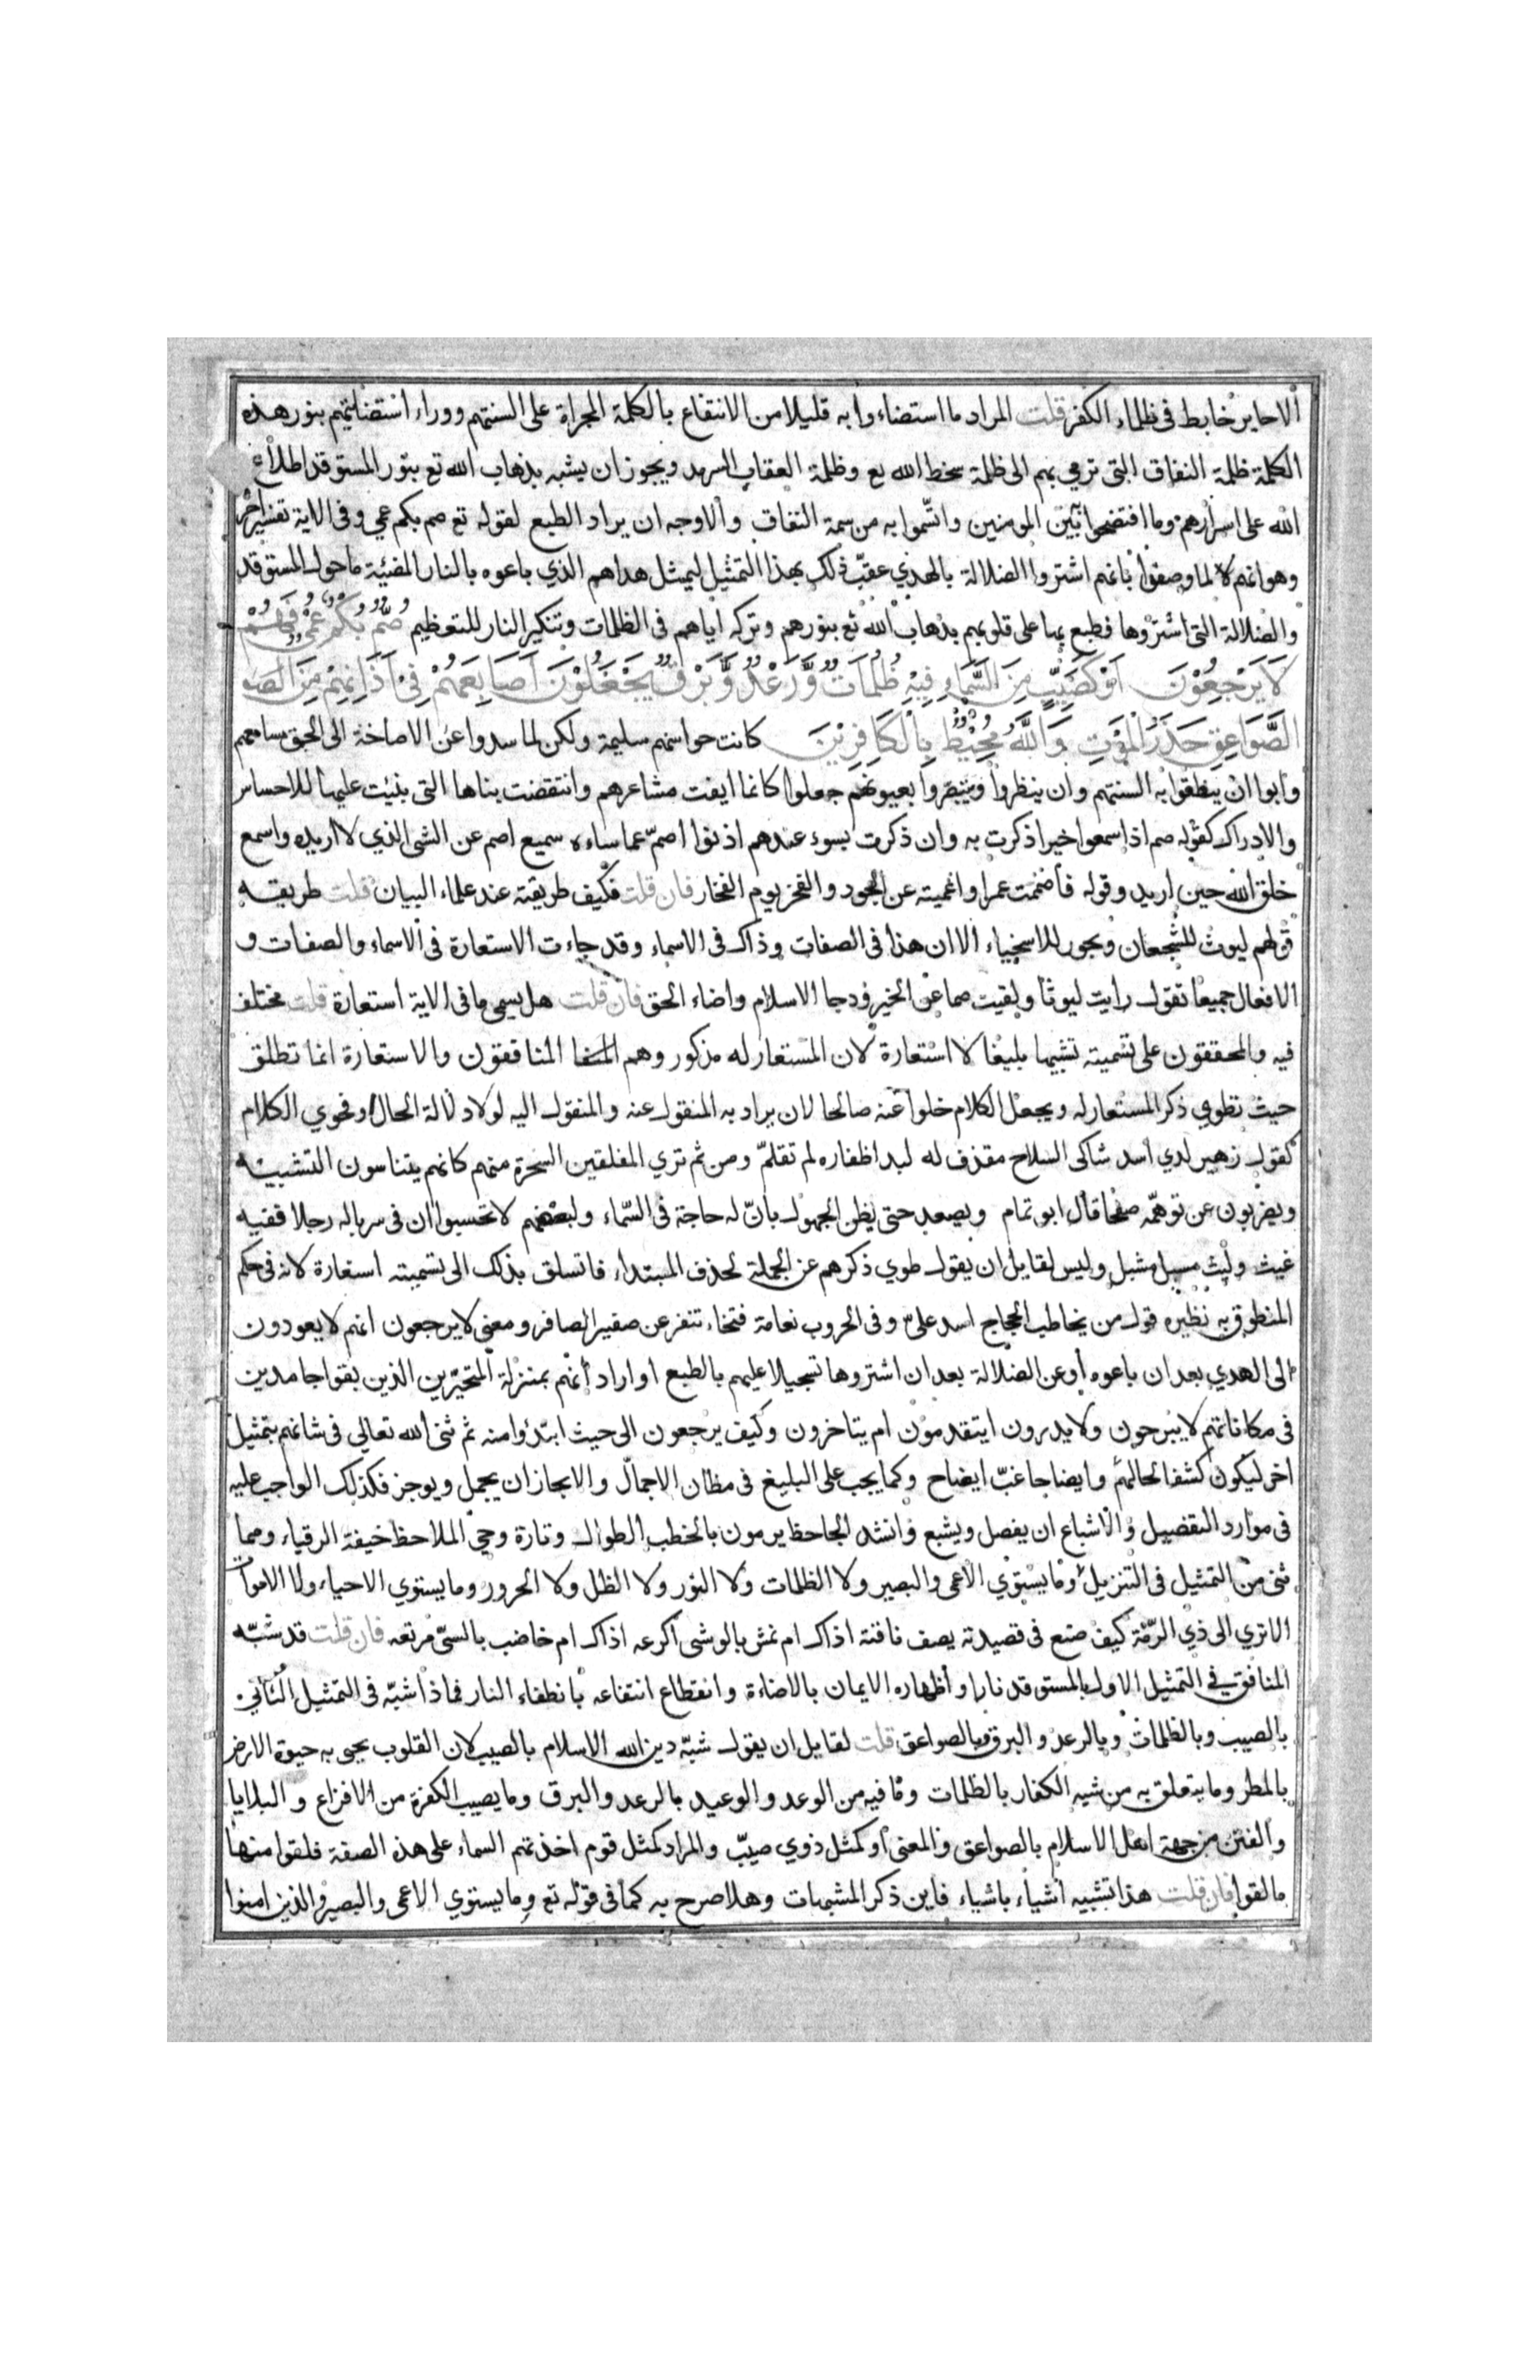 ألا حاير خابط في ظلماء الكفر قلت المراد ما استضاءوا به قليلا من الانتفاع بالكلمة المجراة على السنتهم ووراء استضائتهم بنور هذه
الكلمة ظلمة النفاق التي ترمي بهم الى ظلمة سخط الله تع وظلمة العقاب السرمد ويجوز ان يشبه بذهاب الله تع بنور المستوقد اطلاع
الله على اسرارهم وما افتضحوا بين المومنين واتسموا به من سمة النفاق والاوجه ان يراد الطبع لقوله تع صم بكم عمي وفي الاية تفسير اخر
وهو انهم لما وصفوا بانهم اشتروا الضلالة بالهدي عقب ذلك بهذا التمثيل ليمثل هداهم الذي باعوه بالنار المضئية ما حول المستوقد
والضلالة التي اشتروها فطبع بها على قلوبهم بذهاب الله تع بنورهم وتركه اياهم في الظلمات وتنكير النار للتعظيم صُمٌّ بُكْمٌ عُمْيٌ فَهُمْ
لَا يَرْجِعُوْنَ اَوْ كَصَيِّبٍ مِنَ السَّمَاءِ فِيْهِ ظُلُمَاتٌ وَّرَعْدٌ وَّبَرْقٌ يَجْعَلُوْنَ اَصَابِعَهُمْ فِيْ اٰذَانِهِمْ مِنَ الصَّوَ
الصَّوَاعِقِ حَذَرَ الْمَوْتِ وَاللَّهُ مُحِيْطٌ بِالْكَافِرِيْنَ كانت حواسهم سليمة ولكن لما سدوا عن الاصاخة الى الحق مسامعهم
وابوا ان ينطقوا به السنتهم وان ينظروا ويتبصروا بعيونهم جعلوا كانما ايفت مشاعرهم وانتقضت بناها التي بنيت عليها للاحساس
والادراك كقوله صم اذا سمعوا خيرا ذكرت به وان ذكرت بسوء عندهم اذنوا اصم عما ساءه سميع اصم عن الشى الذي لا اريده واسمع
خلق الله حين اريد وقوله فأصممت عمرا واعميته عن الجود والفخر يوم الفخار فان قلت فكيف طريقته عند علماء البيان قلت طريقه
قولهم ليوث للشجعان وبحور للاسخياء الا ان هذا في الصفات وذاك في الاسماء وقد جاءت الاستعارة في الاسماء والصفات و
الافعال جميعا تقول رايت ليوثا ولقيت صما عن الخير ودجا الاسلام واضاء الحق فان قلت هل يسمى ما في الاية استعارة قلت مختلف
فيه والمحققون على تسميته تشبيها بليغا لا استعارة لان المستعار له مذكور وهم المنافقون والاستعارة انما تطلق
حيث تطوي ذكر المستعار له ويجعل الكلام خلوا عنه صالحا لان يراد به المنقول عنه والمنقول اليه لولا دلالة الحال او فحوي الكلام
كقول زهير لدي اسد شاكى السلاح مقذف له لبد اظفاره لم تقلم ومن ثم تري المفلقين السحرة منهم كانهم يتناسون التشبيه
ويضربون عن توهمه صفحا قال ابو تمام ويصعد حتى يظن الجهول بان له حاجة في السماء ولبعضهم لا تحسبوا ان في سرباله رجلا ففيه
غيث وليث مسبل مشبل وليس لقايل ان يقول طوي ذكرهم عن الجملة لحذف المبتداء فاتسلق بذلك الى تسميته استعارة لانه في حكم
المنطوق به نظيره قول من يخاطب الحجاج اسد على وفي الحروب نعامة فتخاء تنفر عن صفير الصافر ومعنى لا يرجعون انهم لا يعودون
الى الهدي بعد ان باعوه أو عن الضلالة بعد ان اشتروها تسجيلا عليهم بالطبع او اراد أنهم بمنزلة المتحيرين الذين بقوا جامدين
في مكاناتهم لا يبرحون ولا يدرون ايتقدمون ام يتاخرون وكيف يرجعون الى حيث ابتدؤا منه ثم ثنى الله تعالي في شانهم بتمثيل
اخر ليكون كشفا لحالهم وايضاحا غبّ ايضاح وكما يجب على البليغ في مظان الاجمال والايجاز ان يجمل ويوجز فكذلك الواجب عليه
في موارد التفضيل والاشباع ان يفصل ويشبع وانشد الجاحظ يرمون بالخطب الطوال وتارة وحي الملاحظ خيفة الرقباء ومما
ثنى من التمثيل في التنزيل وما يستوي الاعمى والبصير ولا الظلمات ولا النور ولا الظل ولا الحرور وما يستوي الاحياء ولا الاموات
الا تري الى ذي الرمّة كيف صنع في قصيدته يصف ناقته اذاك ام نمش بالوشى اكرعه اذاك ام خاضب بالسىّ مرتعه فان قلت قد شبّه
المنافق في التمثيل الاول بالمستوقد نارا واظهاره الايمان بالاضاءة وانقطاع انتفاعه بانطفاء النار فماذا شبّه في التمثيل الثاني
بالصيب وبالظلمات وبالرعد والبرق وبالصواعق قلت لقايل ان يقول شبّه دين الله الاسلام بالصيب لان القلوب يحيى به حيوة الارض
بالمطر وما يتعلق به من شبه الكفار بالظلمات وما فيه من الوعد والوعيد بالرعد والبرق وما يصيب الكفرة من الافزاع والبلايا
والفتن من جهة اهل الاسلام بالصواعق والمعنى أو كمثل ذوي صيّب والمراد كمثل قوم اخذتهم السماء على هذه الصفة فلقوا منها
ما لقوا فان قلت هذا تشبيه أشياء باشياء فاين ذكر المشبهات وهلا صرح به كما في قوله تع وما يستوي الاعمى والبصير والذين امنوا